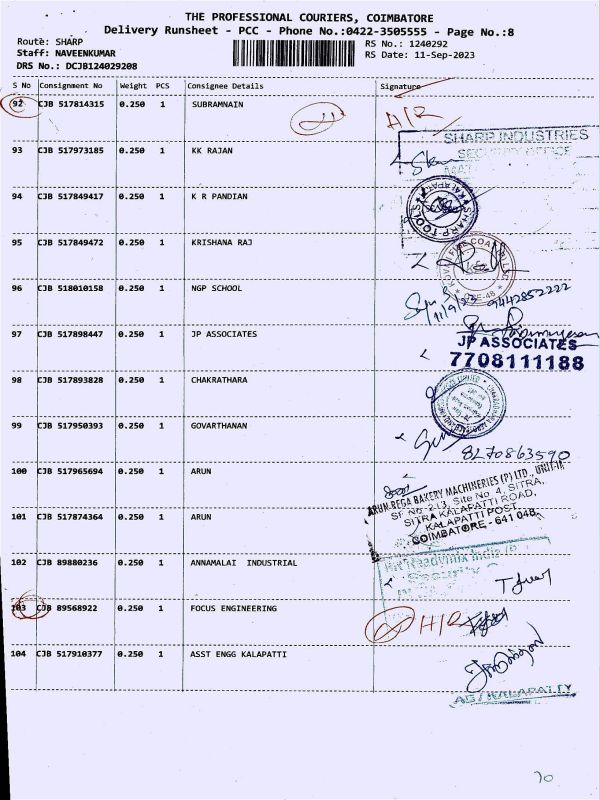 THE PROFESSIONAL COURIERS, COIMBATORE
Delivery Runsheet - PCC - Phone No.:0422-3505555 - Page No.:8
Route: SHARP
Staff: NAVEENKUMAR
DRS No.: DCJB124029208
RS No.: 1240292
RS Date: 11-Sep-2023
S No Consignment No Weight PCS Consignee Details Signature
92 CJB 517814315 0.250 1 SUBRAMNAIN
SHARP INDUSTRIES
93 CJB 517973185 0.250 1 KK RAJAN
94 CJB 517849417 0.250 1 K R PANDIAN
SHARP TOOLS KALAPATTI
95 CJB 517849472 0.250 1 KRISHANA RAJ
96 CJB 518010158 0.250 1 NGP SCHOOL
11/9/23 9442852222
97 CJB 517898447 0.250 1 JP ASSOCIATES
JP ASSOCIATES
7708111188
98 CJB 517893828 0.250 1 CHAKRATHARA
99 CJB 517950393 0.250 1 GOVARTHANAN
8270863590
100 CJB 517965694 0.250 1 ARUN
ARUN REGA BAKERY MACHINERIES (P) LTD., UNIT-II
SF No. 213, Site No 4, SITRA,
SITRA KALAPATTI ROAD,
KALAPATTI POST,
COIMBATORE - 641 048.
101 CJB 517874364 0.250 1 ARUN
102 CJB 89880236 0.250 1 ANNAMALAI INDUSTRIAL
103 CJB 89568922 0.250 1 FOCUS ENGINEERING
104 CJB 517910377 0.250 1 ASST ENGG KALAPATTI